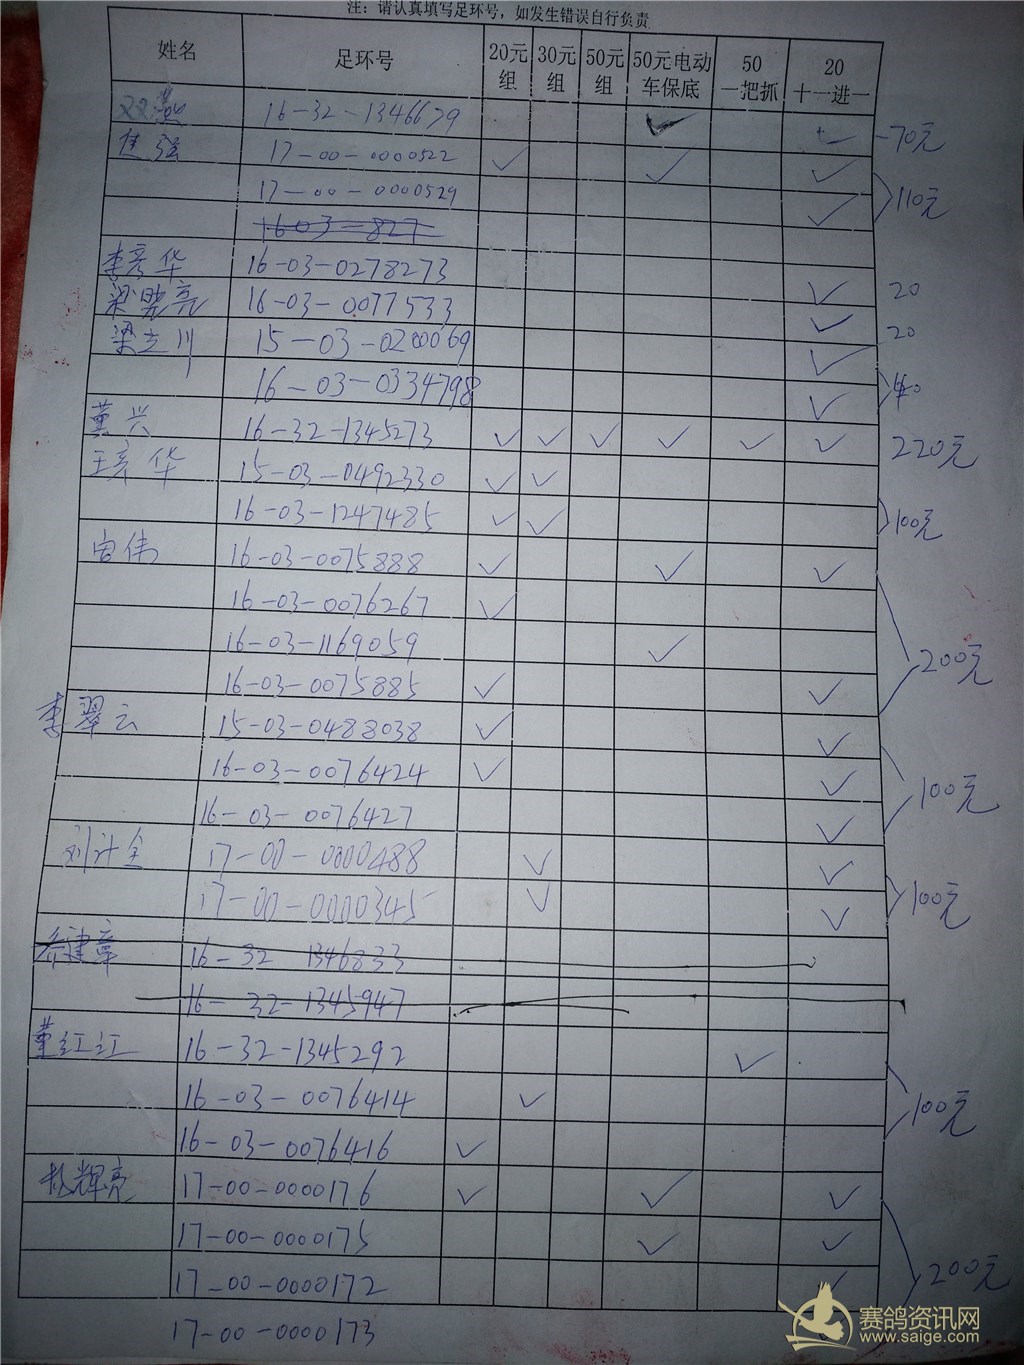 注：请认真填写足环号，如发生错误自行负责
姓名 足环号 20元组 30元组 50元组 50元电动车保底 50一把抓 20十一进一
16-32-1346679 ✓ ✓ -70元
17-00-0000522 ✓ ✓ ✓
17-00-0000529 ✓ 110元
16-03-827
李彦华 16-03-0278273 ✓ 20
梁晓亮 16-03-0077533 ✓ 20
梁立川 15-03-0200069 ✓
16-03-0334798 ✓ 40
董兴 16-32-1345273 ✓ ✓ ✓ ✓ ✓ ✓ 220元
王彦华 15-03-0492330 ✓ ✓
16-03-1247485 ✓ ✓ 100元
宙伟 16-03-0075888 ✓ ✓ ✓
16-03-0076267 ✓
16-03-1169059 ✓ 200元
16-03-0075885 ✓ ✓
李翠云 15-03-0488038 ✓ ✓
16-03-0076424 ✓ ✓ 100元
16-03-0076427 ✓
刘计全 17-00-0000488 ✓ ✓
17-00-0000345 ✓ ✓ 100元
乔建章 16-32 1346833
16-32-1345947
董红江 16-32-1345292 ✓
16-03-0076414 ✓ 100元
16-03-0076416 ✓
辉亮 17-00-0000176 ✓ ✓ ✓
17-00-0000175 ✓ ✓
17-00-0000172 ✓ 200元
17-00-0000173
赛鸽资讯网
www.saige.com